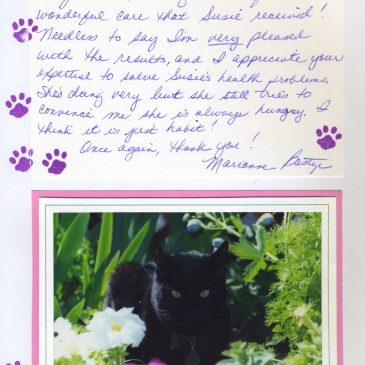 wonderful care that Susie received!
Needless to say I'm very pleased
with the results, and I appreciate your
expertise to solve Susie's health problems.
She's doing very but she still tries to
convince me she is always hungry. I
think it is just habit!
Once again, thank you!
Marianne